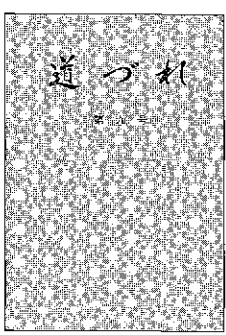 道づれ